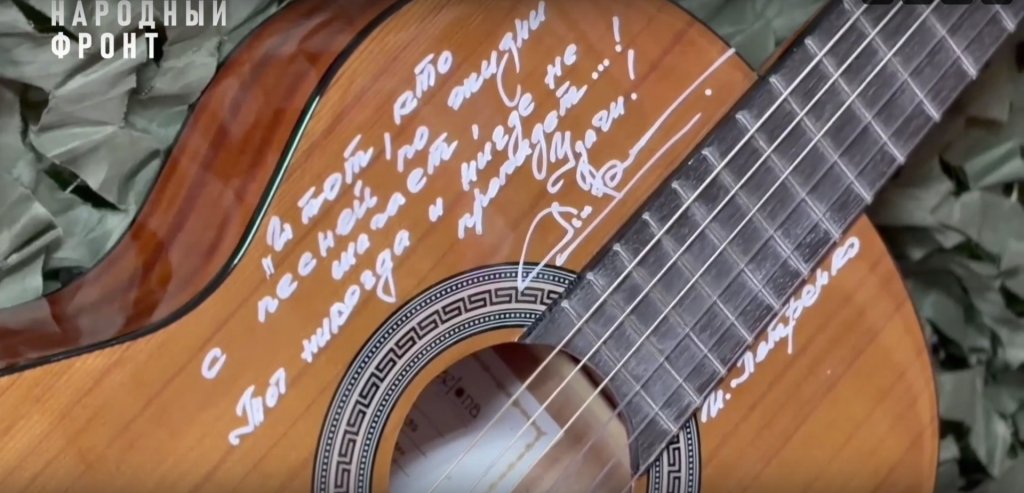 НАРОДНЫЙ
ФРОНТ
"И тот, кто
с песней по жизни
шагает,
Тот никогда и нигде не
пропадет...!
Удачи!
И. Петренко